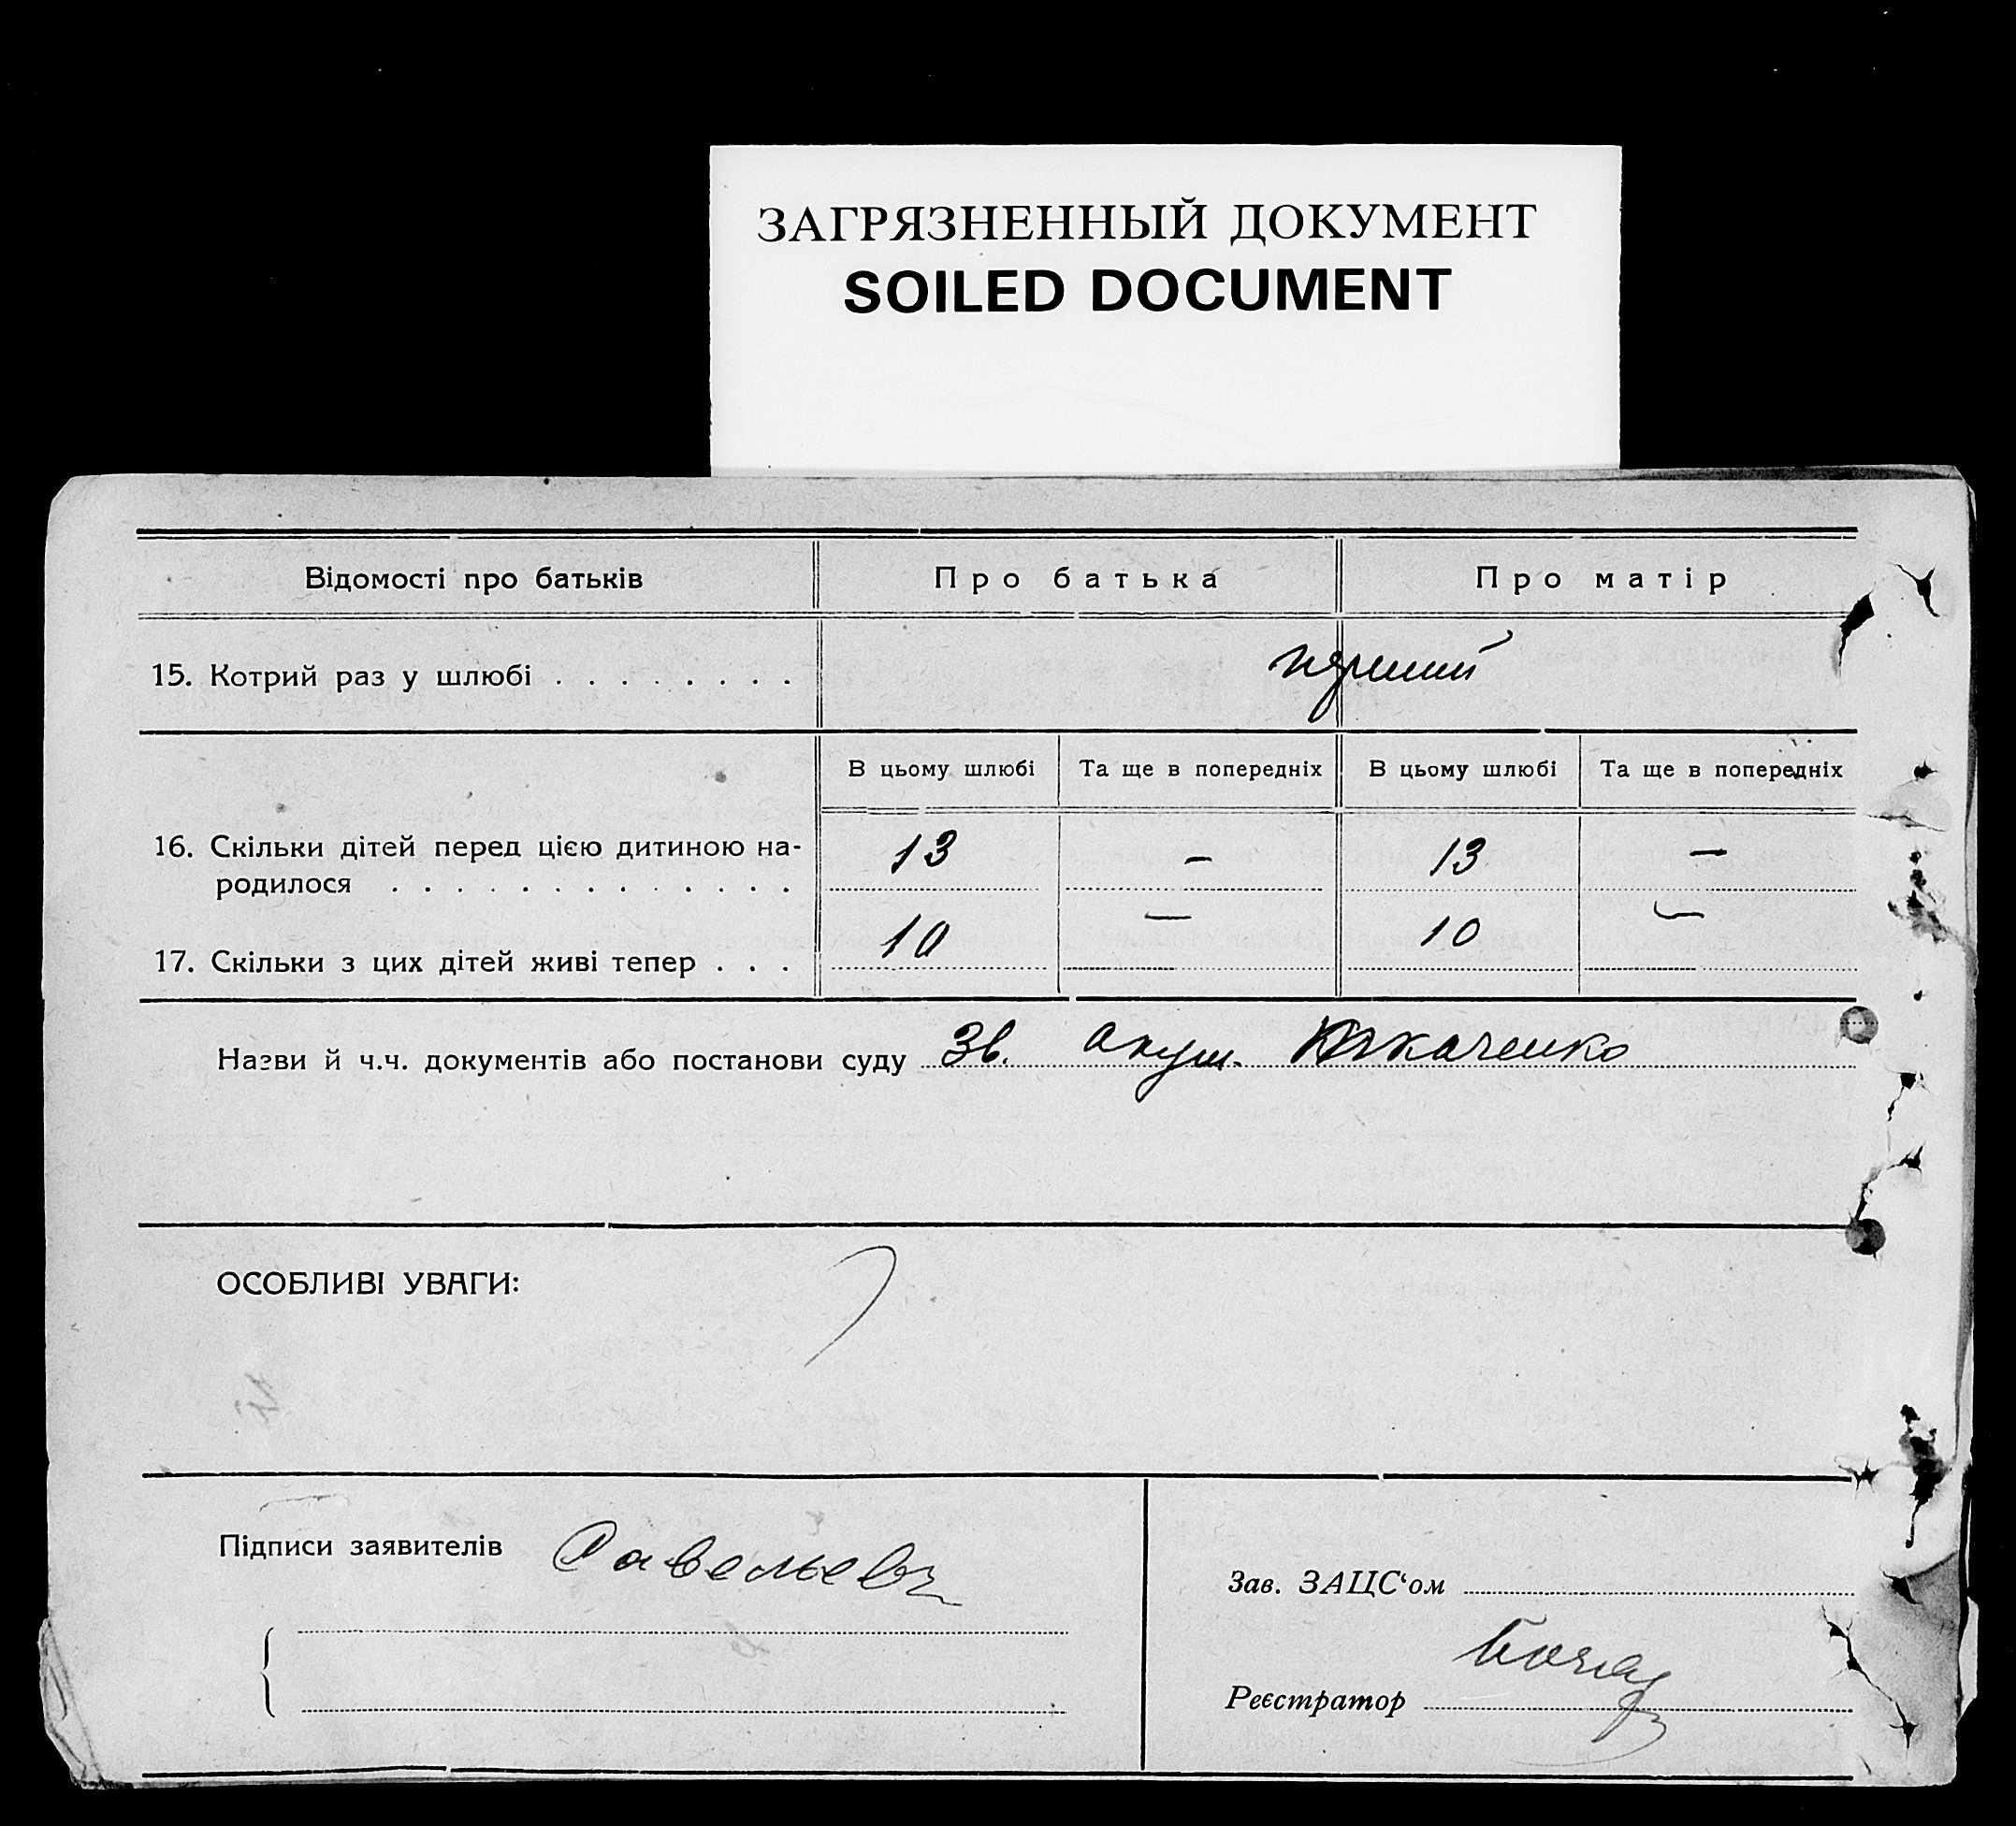 ЗАГРЯЗНЕННЫЙ ДОКУМЕНТ
SOILED DOCUMENT
Відомості про батьків Про батька Про матір
15. Котрий раз у шлюбі . . . . . . . . перший
В цьому шлюбі Та ще в попередніх В цьому шлюбі Та ще в попередніх
16. Скільки дітей перед цією дитиною на- 13 — 13 —
родилося . . . . . . . . . . . . .
17. Скільки з цих дітей живі тепер . . . 10 — 10 —
Назви й ч.ч. документів або постанови суду Зв. акуш. Ткаченко
ОСОБЛИВІ УВАГИ:
Підписи заявителів Савельевъ
Зав. ЗАЦС‘ом
Реєстратор